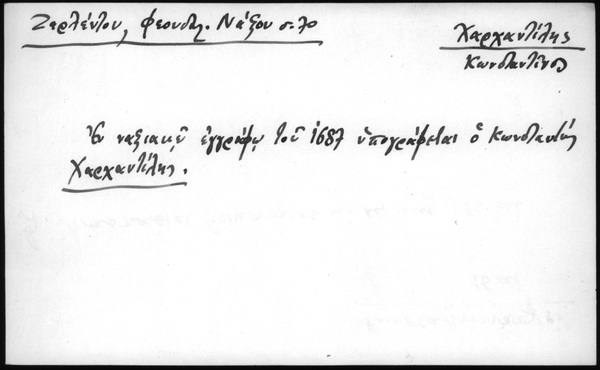 Ζερλέντου, Φεουδαλ. Νάξου σ. 70
Χαρχαντίλης
Κωνσταντῖνος
Ἐν ναξιακῷ ἐγγράφῳ τοῦ 1687 ὑπογράφεται ὁ Κωνσταντῆς
Χαρχαντίλης.